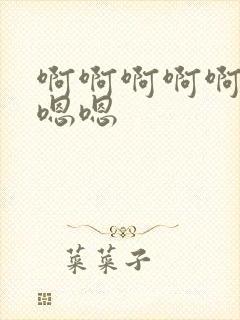 啊啊啊啊啊
嗯嗯
菜菜子